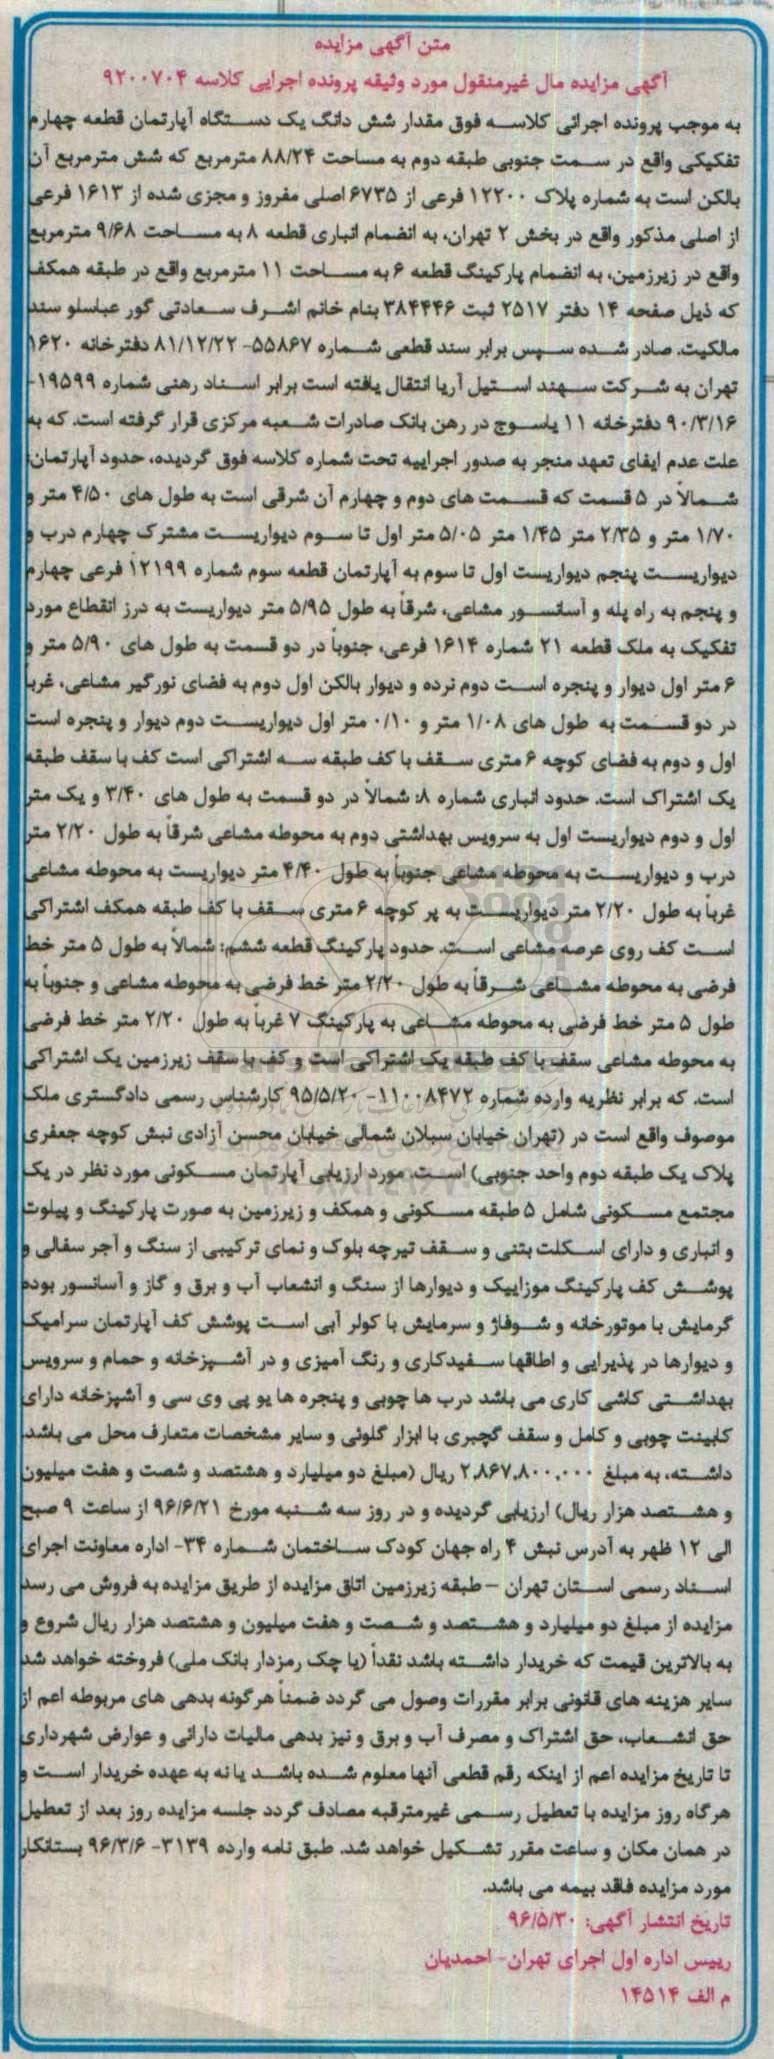 متن آگهی مزایده
آگهی مزایده مال غیرمنقول مورد وثیقه پرونده اجرایی کلاسه ۹۲۰۰۷۰۴
به موجب پرونده اجرائی کلاسه فوق مقدار شش دانگ یک دستگاه آپارتمان قطعه چهارم
تفکیکی واقع در سمت جنوبی طبقه دوم به مساحت ۸۸/۲۴ مترمربع که شش مترمربع آن
بالکن است به شماره پلاک ۱۲۲۰۰ فرعی از ۶۷۳۵ اصلی مفروز و مجزی شده از ۱۶۱۳ فرعی
از اصلی مذکور واقع در بخش ۲ تهران، به انضمام انباری قطعه ۸ به مساحت ۹/۶۸ مترمربع
واقع در زیرزمین، به انضمام پارکینگ قطعه ۶ به مساحت ۱۱ مترمربع واقع در طبقه همکف
که ذیل صفحه ۱۴ دفتر ۲۵۱۷ ثبت ۳۸۴۴۴۶ بنام خانم اشرف سعادتی گور عباسلو سند
مالکیت. صادر شده سپس برابر سند قطعی شماره ۵۵۸۶۷- ۸۱/۱۲/۲۲ دفترخانه ۱۶۲۰
تهران به شرکت سهند استیل آریا انتقال یافته است برابر اسناد رهنی شماره ۱۹۵۹۹-
۹۰/۳/۱۶ دفترخانه ۱۱ یاسوج در رهن بانک صادرات شعبه مرکزی قرار گرفته است. که به
علت عدم ایفای تعهد منجر به صدور اجراییه تحت شماره کلاسه فوق گردیده، حدود آپارتمان:
شمالاً در ۵ قسمت که قسمت های دوم و چهارم آن شرقی است به طول های ۴/۵۰ متر و
۱/۷۰ متر و ۲/۳۵ متر ۱/۴۵ متر ۵/۰۵ متر اول تا سوم دیواریست مشترک چهارم درب و
دیواریست پنجم دیواریست اول تا سوم به آپارتمان قطعه سوم شماره ۱۲۱۹۹ فرعی چهارم
و پنجم به راه پله و آسانسور مشاعی، شرقاً به طول ۵/۹۵ متر دیواریست به درز انقطاع مورد
تفکیک به ملک قطعه ۲۱ شماره ۱۶۱۴ فرعی، جنوباً در دو قسمت به طول های ۵/۹۰ متر و
۶ متر اول دیوار و پنجره است دوم نرده و دیوار بالکن اول دوم به فضای نورگیر مشاعی، غرباً
در دو قسمت به طول های ۱/۰۸ متر و ۰/۱۰ متر اول دیواریست دوم دیوار و پنجره است
اول و دوم به فضای کوچه ۶ متری سقف با کف طبقه سه اشتراکی است کف با سقف طبقه
یک اشتراک است. حدود انباری شماره ۸: شمالاً در دو قسمت به طول های ۳/۴۰ و یک متر
اول و دوم دیواریست اول به سرویس بهداشتی دوم به محوطه مشاعی شرقاً به طول ۲/۲۰ متر
درب و دیواریست به محوطه مشاعی جنوباً به طول ۴/۴۰ متر دیواریست به محوطه مشاعی
غرباً به طول ۲/۲۰ متر دیواریست به پر کوچه ۶ متری سقف با کف طبقه همکف اشتراکی
است کف روی عرصه مشاعی است. حدود پارکینگ قطعه ششم: شمالاً به طول ۵ متر خط
فرضی به محوطه مشاعی شرقاً به طول ۲/۲۰ متر خط فرضی به محوطه مشاعی و جنوباً به
طول ۵ متر خط فرضی به محوطه مشاعی به پارکینگ ۷ غرباً به طول ۲/۲۰ متر خط فرضی
به محوطه مشاعی سقف با کف طبقه یک اشتراکی است و کف با سقف زیرزمین یک اشتراکی
است. که برابر نظریه وارده شماره ۱۱۰۰۸۴۷۲- ۹۵/۵/۲۰ کارشناس رسمی دادگستری ملک
موصوف واقع است در (تهران خیابان سبلان شمالی خیابان محسن آزادی نبش کوچه جعفری
پلاک یک طبقه دوم واحد جنوبی) است. مورد ارزیابی آپارتمان مسکونی مورد نظر در یک
مجتمع مسکونی شامل ۵ طبقه مسکونی و همکف و زیرزمین به صورت پارکینگ و پیلوت
و انباری و دارای اسکلت بتنی و سقف تیرچه بلوک و نمای ترکیبی از سنگ و آجر سفالی و
پوشش کف پارکینگ موزاییک و دیوارها از سنگ و انشعاب آب و برق و گاز و آسانسور بوده
گرمایش با موتورخانه و شوفاژ و سرمایش با کولر آبی است پوشش کف آپارتمان سرامیک
و دیوارها در پذیرایی و اطاقها سفیدکاری و رنگ آمیزی و در آشپزخانه و حمام و سرویس
بهداشتی کاشی کاری می باشد درب ها چوبی و پنجره ها یو پی وی سی و آشپزخانه دارای
کابینت چوبی و کامل و سقف گچبری با ابزار گلوئی و سایر مشخصات متعارف محل می باشد.
داشته، به مبلغ ۲,۸۶۷,۸۰۰,۰۰۰ ریال (مبلغ دو میلیارد و هشتصد و شصت و هفت میلیون
و هشتصد هزار ریال) ارزیابی گردیده و در روز سه شنبه مورخ ۹۶/۶/۲۱ از ساعت ۹ صبح
الی ۱۲ ظهر به آدرس نبش ۴ راه جهان کودک ساختمان شماره ۳۴- اداره معاونت اجرای
اسناد رسمی استان تهران – طبقه زیرزمین اتاق مزایده از طریق مزایده به فروش می رسد
مزایده از مبلغ دو میلیارد و هشتصد و شصت و هفت میلیون و هشتصد هزار ریال شروع و
به بالاترین قیمت که خریدار داشته باشد نقداً (یا چک رمزدار بانک ملی) فروخته خواهد شد
سایر هزینه های قانونی برابر مقررات وصول می گردد ضمناً هرگونه بدهی های مربوطه اعم از
حق انشعاب، حق اشتراک و مصرف آب و برق و نیز بدهی مالیات دارائی و عوارض شهرداری
تا تاریخ مزایده اعم از اینکه رقم قطعی آنها معلوم شده باشد یا نه به عهده خریدار است و
هرگاه روز مزایده با تعطیل رسمی غیرمترقبه مصادف گردد جلسه مزایده روز بعد از تعطیل
در همان مکان و ساعت مقرر تشکیل خواهد شد. طبق نامه وارده ۳۱۳۹- ۹۶/۳/۶ بستانکار
مورد مزایده فاقد بیمه می باشد.
تاریخ انتشار آگهی: ۹۶/۵/۳۰
رییس اداره اول اجرای تهران- احمدیان
م الف ۱۴۵۱۴